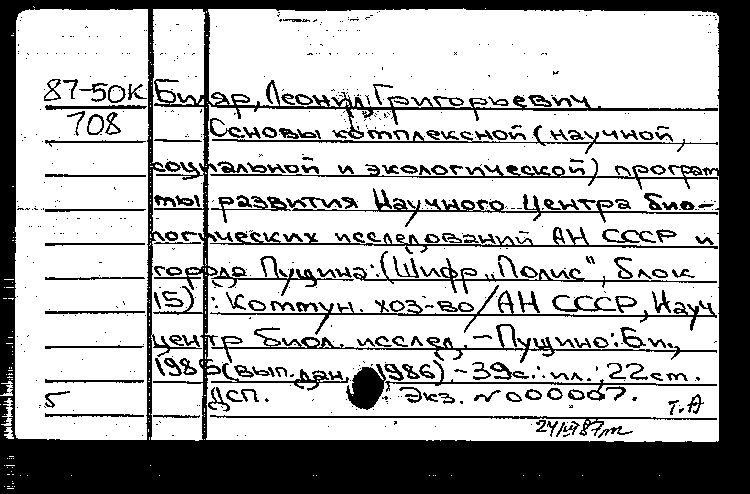 87-50К Биляр, Леонид Григорьевич.
708 Основы комплексной (научной,
социальной и экологической) програм
мы развития Научного Центра био-
логических исследований АН СССР и
города Пущина: (Шифр „Полис", Блок
15) : Коммун. хоз-во / АН СССР, Науч
центр биол. исслед. - Пущино: Б.и.,
1985 (вып. дан. 1986). - 39с.: ил.; 22 см.
5 ДСП. Экз. № 000007. т. А